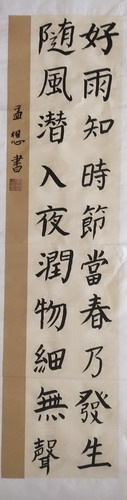 好雨知時節當春乃發生
随風潛入夜潤物細無聲
孟想書